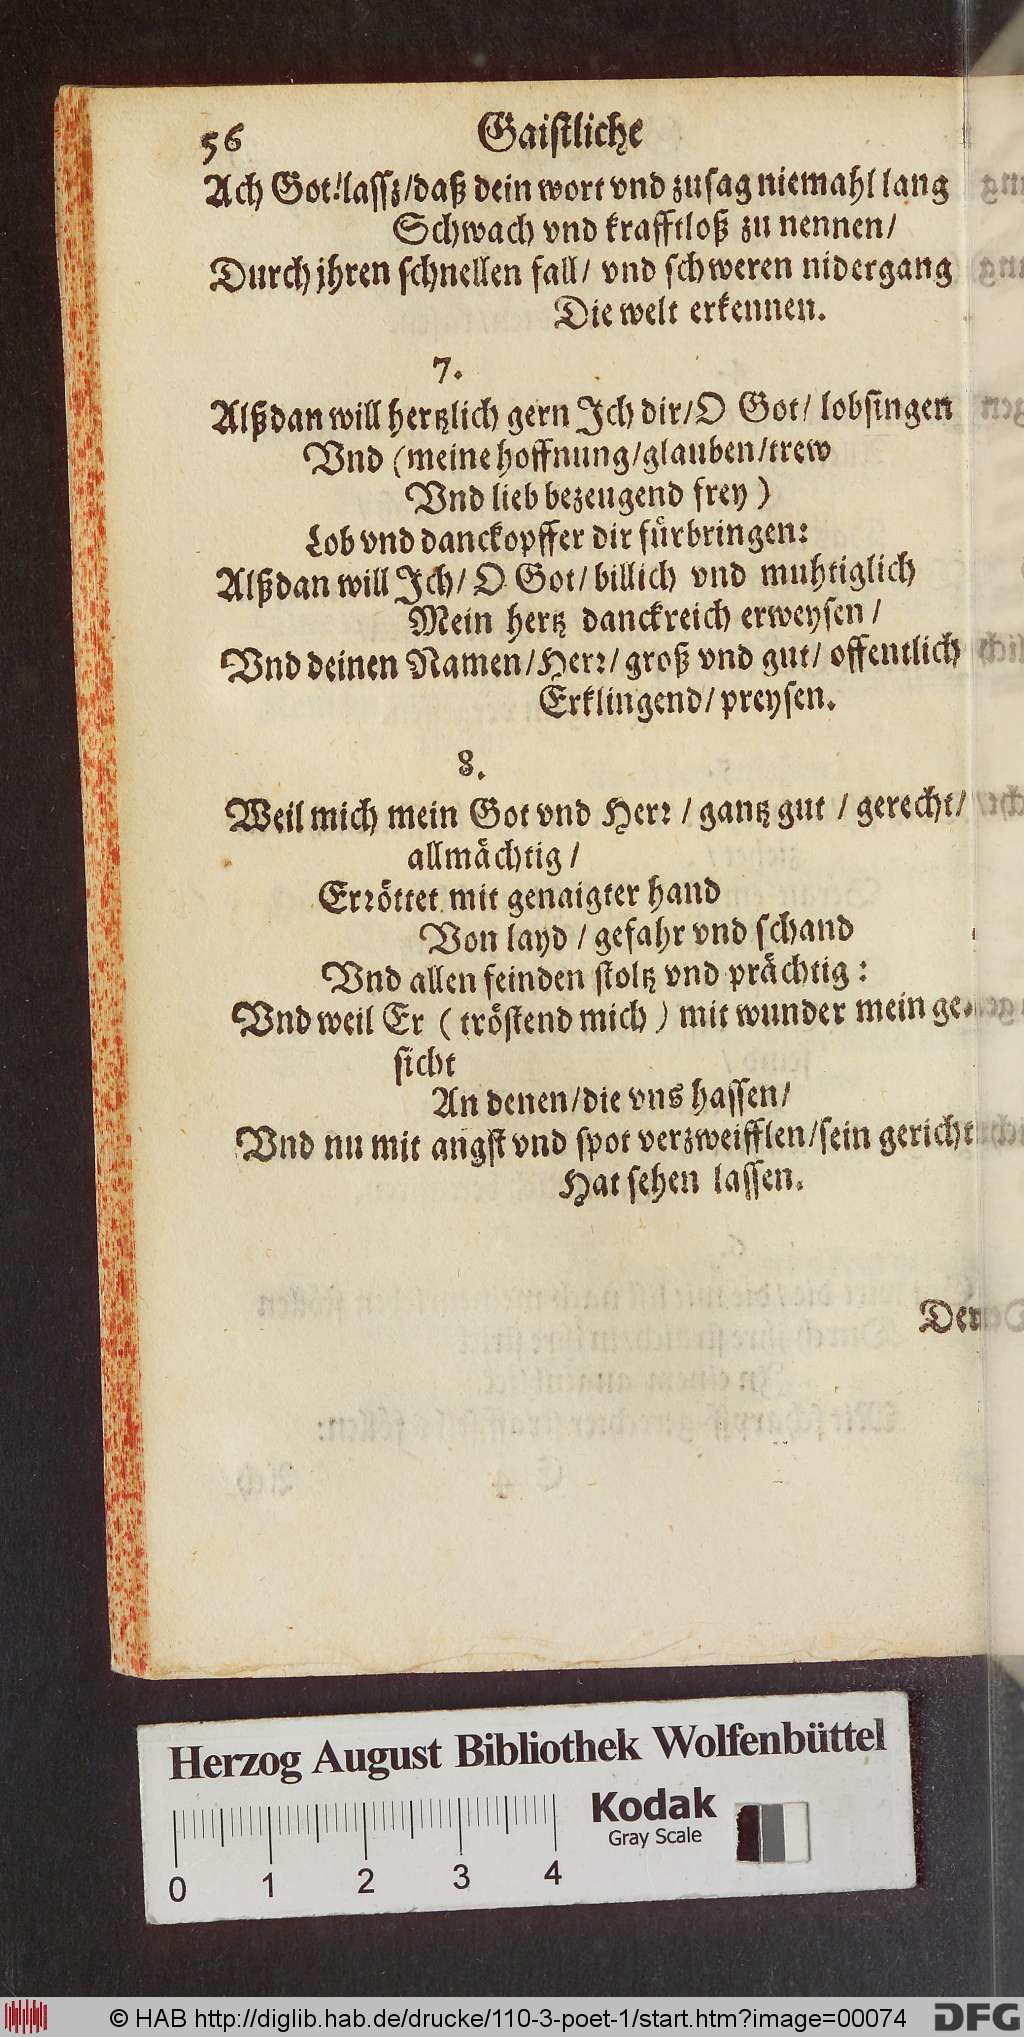 56 Gaistliche
Ach Got! lassz/daß dein wort vnd zusag niemahl lang
Schwach vnd krafftloß zu nennen/
Durch jhren schnellen fall/ vnd schweren nidergang
Die welt erkennen.
7.
Alßdan will hertzlich gern Jch dir/O Got/ lobsingen
Vnd (meine hoffnung/glauben/trew
Vnd lieb bezeugend frey)
Lob vnd danckopffer dir fürbringen:
Alßdan will Jch/ O Got/ billich vnd muhtiglich
Mein hertz danckreich erweysen/
Vnd deinen Namen/Herr/ groß vnd gut/ offentlich
Erklingend/ preysen.
8.
Weil mich mein Got vnd Herr / gantz gut / gerecht/
allmächtig /
Erröttet mit genaigter hand
Von layd / gefahr vnd schand
Vnd allen feinden stoltz vnd prächtig:
Vnd weil Er ( tröstend mich ) mit wunder mein ge-
sicht
An denen/die vns hassen/
Vnd nu mit angst vnd spot verzweifflen/sein gericht
Hat sehen lassen.
Herzog August Bibliothek Wolfenbüttel
Kodak
Gray Scale
0 1 2 3 4
© HAB http://diglib.hab.de/drucke/110-3-poet-1/start.htm?image=00074 DFG